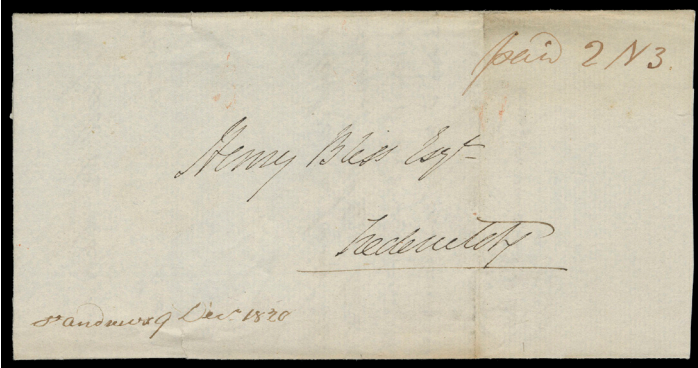 paid 2 N 3.
Henry Bliss Esqr
Fredericton
St andrews 9 Decr 1820